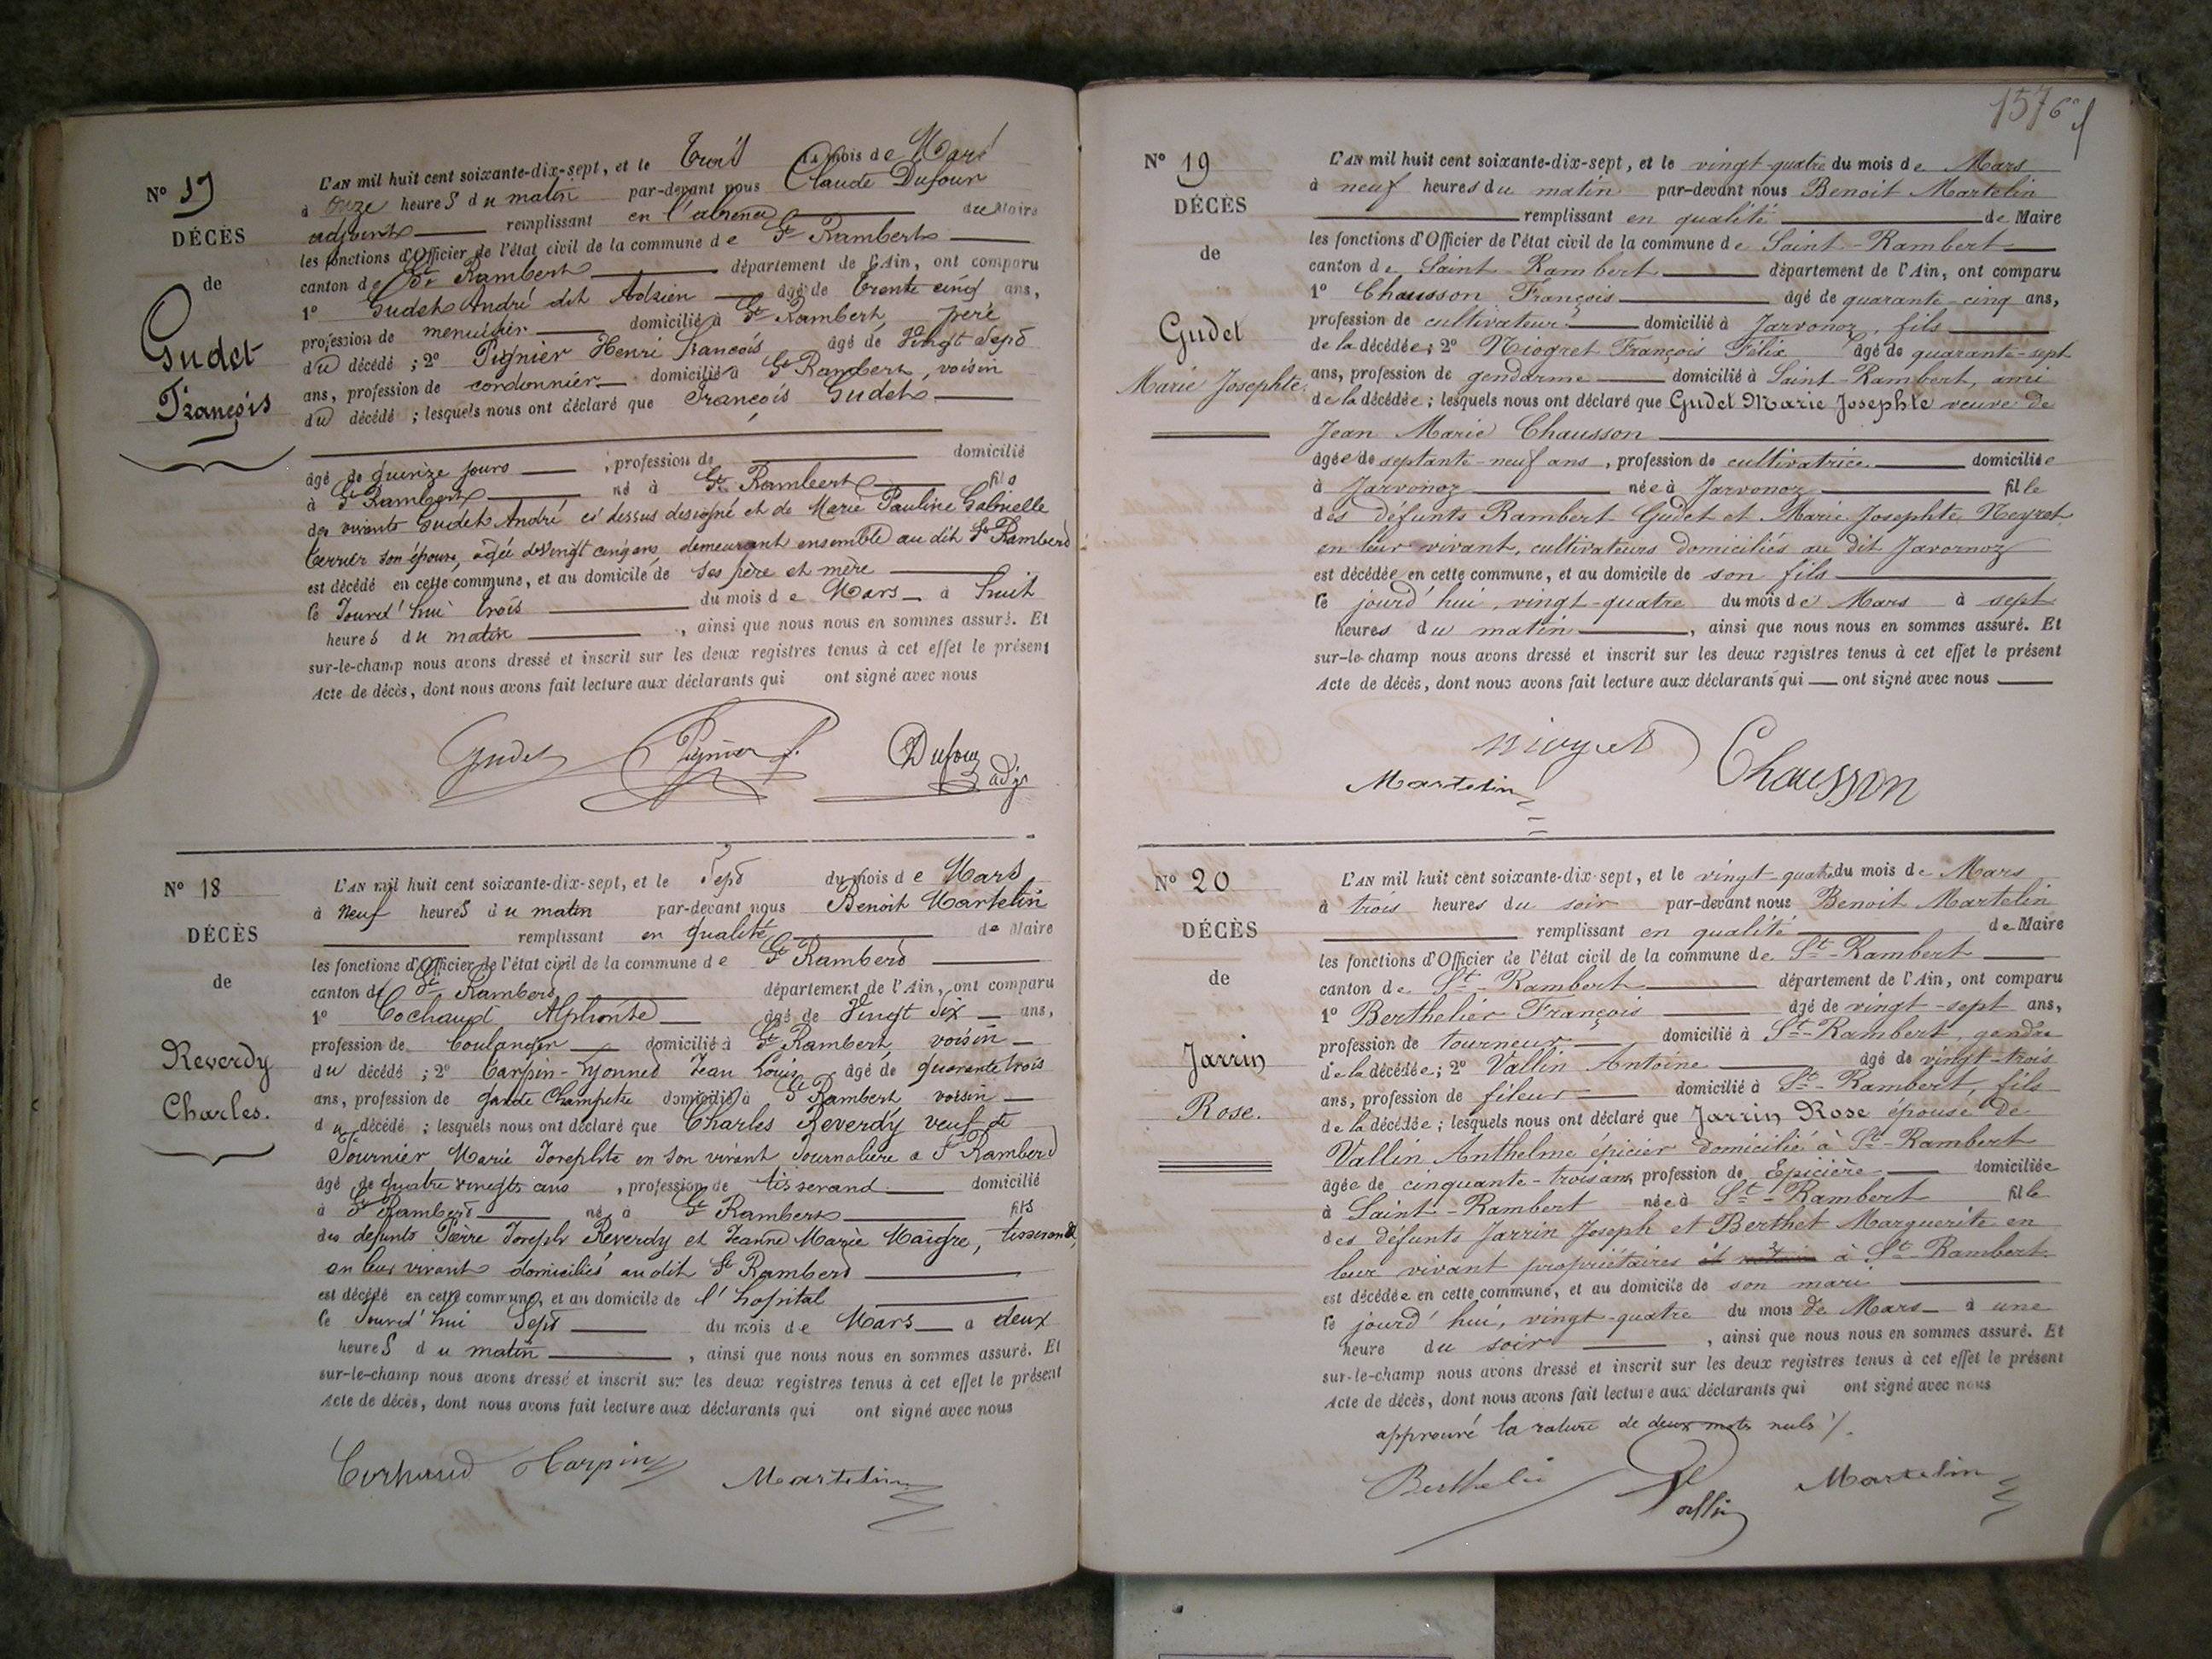 Nº 17
DÉCÈS
de
Gudet
François
L'AN mil huit cent soixante-dix-sept, et le trois du mois de Mars
à onze heures du matin par-devant nous Claude Dufour
adjoint remplissant en l'absence du Maire
les fonctions d'Officier de l'état civil de la commune de St Rambert
canton de St Rambert département de l'Ain, ont comparu
1º Gudet André dit Adrien âgé de trente cinq ans,
profession de menuisier domicilié à St Rambert, père
du décédé ; 2º Pignier Henri François âgé de vingt sept
ans, profession de cordonnier domicilié à St Rambert, voisin
du décédé ; lesquels nous ont déclaré que François Gudet
âgé de quinze jours, profession de domicilié
à St Rambert né à St Rambert fils
des vivants Gudet André ci dessus designé et de Marie Pauline Gabrielle
terrier son épouse, agée de vingt cinq ans demeurant ensemble au dit St Rambert
est décédé en cette commune, et au domicile de ses père et mère
le Jourd'hui trois du mois de Mars à huit
heures du matin, ainsi que nous nous en sommes assuré. Et
sur-le-champ nous avons dressé et inscrit sur les deux registres tenus à cet effet le présent
Acte de décès, dont nous avons fait lecture aux déclarants qui ont signé avec nous
Gudet Pignier f. Dufour adj
Nº 18
DÉCÈS
de
Reverdy
Charles.
L'AN mil huit cent soixante-dix-sept, et le sept du mois de Mars
à neuf heures du matin par-devant nous Benoit Martelin
remplissant en qualité de Maire
les fonctions d'Officier de l'état civil de la commune de St Rambert
canton de St Rambert département de l'Ain, ont comparu
1º Cochaud Alphonse âgé de vingt six ans,
profession de boulanger domicilié à St Rambert, voisin
du décédé ; 2º Carpin-Lyonned Jean Louis âgé de quarante trois
ans, profession de garde Champetre domicilié à St Rambert voisin
du décédé ; lesquels nous ont déclaré que Charles Reverdy veuf de
Fournier Marie Josephte en son vivant Journaliere a St Rambert
âgé de quatre vingts ans, profession de tisserand domicilié
à St Rambert né à St Rambert fils
des defunts Pierre Joseph Reverdy et Jeanne Marie Maigre, tisserands,
en leur vivant domiciliés au dit St Rambert
est décédé en cette commune, et au domicile de l'hopital
le Jourd'hui sept du mois de Mars à deux
heures du matin, ainsi que nous nous en sommes assuré. Et
sur-le-champ nous avons dressé et inscrit sur les deux registres tenus à cet effet le présent
Acte de décès, dont nous avons fait lecture aux déclarants qui ont signé avec nous
Cochaud Carpin Martelin
157
Nº 19
DÉCÈS
de
Gudet
Marie Josephte.
L'AN mil huit cent soixante-dix-sept, et le vingt-quatre du mois de Mars
à neuf heures du matin par-devant nous Benoit Martelin
remplissant en qualité de Maire
les fonctions d'Officier de l'état civil de la commune de Saint-Rambert
canton de Saint-Rambert département de l'Ain, ont comparu
1º Chausson François âgé de quarante-cinq ans,
profession de cultivateur domicilié à Javornoz, fils
de la décédée ; 2º Niogret François Félix âgé de quarante-sept
ans, profession de gendarme domicilié à Saint-Rambert, ami
de la décédée ; lesquels nous ont déclaré que Gudet Marie Josephte veuve de
Jean Marie Chausson
âgée de septante-neuf ans, profession de cultivatrice domiciliée
à Jarvonoz née à Jarvonoz fille
des défunts Rambert Gudet et Marie Josephte Neyret
en leur vivant, cultivateurs domiciliés au dit Javornoz
est décédée en cette commune, et au domicile de son fils
le jourd'hui, vingt-quatre du mois de Mars à sept
heures du matin, ainsi que nous nous en sommes assuré. Et
sur-le-champ nous avons dressé et inscrit sur les deux registres tenus à cet effet le présent
Acte de décès, dont nous avons fait lecture aux déclarants qui ont signé avec nous
Niogret Chausson
Martelin
Nº 20
DÉCÈS
de
Jarrin
Rose.
L'AN mil huit cent soixante-dix-sept, et le vingt-quatre du mois de Mars
à trois heures du soir par-devant nous Benoit Martelin
remplissant en qualité de Maire
les fonctions d'Officier de l'état civil de la commune de St-Rambert
canton de St-Rambert département de l'Ain, ont comparu
1º Berthelier François âgé de vingt-sept ans,
profession de tourneur domicilié à St-Rambert, gendre
de la décédée ; 2º Vallin Antoine âgé de vingt-trois
ans, profession de fileur domicilié à St-Rambert, fils
de la décédée ; lesquels nous ont déclaré que Jarrin Rose épouse de
Vallin Anthelme épicier domicilié à St-Rambert
âgée de cinquante-trois ans, profession de Epicière domiciliée
à Saint-Rambert née à St-Rambert fille
des défunts Jarrin Joseph et Berthet Marguerite en
leur vivant propriétaires à St-Rambert
est décédée en cette commune, et au domicile de son mari
le jourd'hui, vingt-quatre du mois de Mars à une
heure du soir, ainsi que nous nous en sommes assuré. Et
sur-le-champ nous avons dressé et inscrit sur les deux registres tenus à cet effet le présent
Acte de décès, dont nous avons fait lecture aux déclarants qui ont signé avec nous
approuvé la rature de deux mots nuls
Berthelie Vallin Martelin